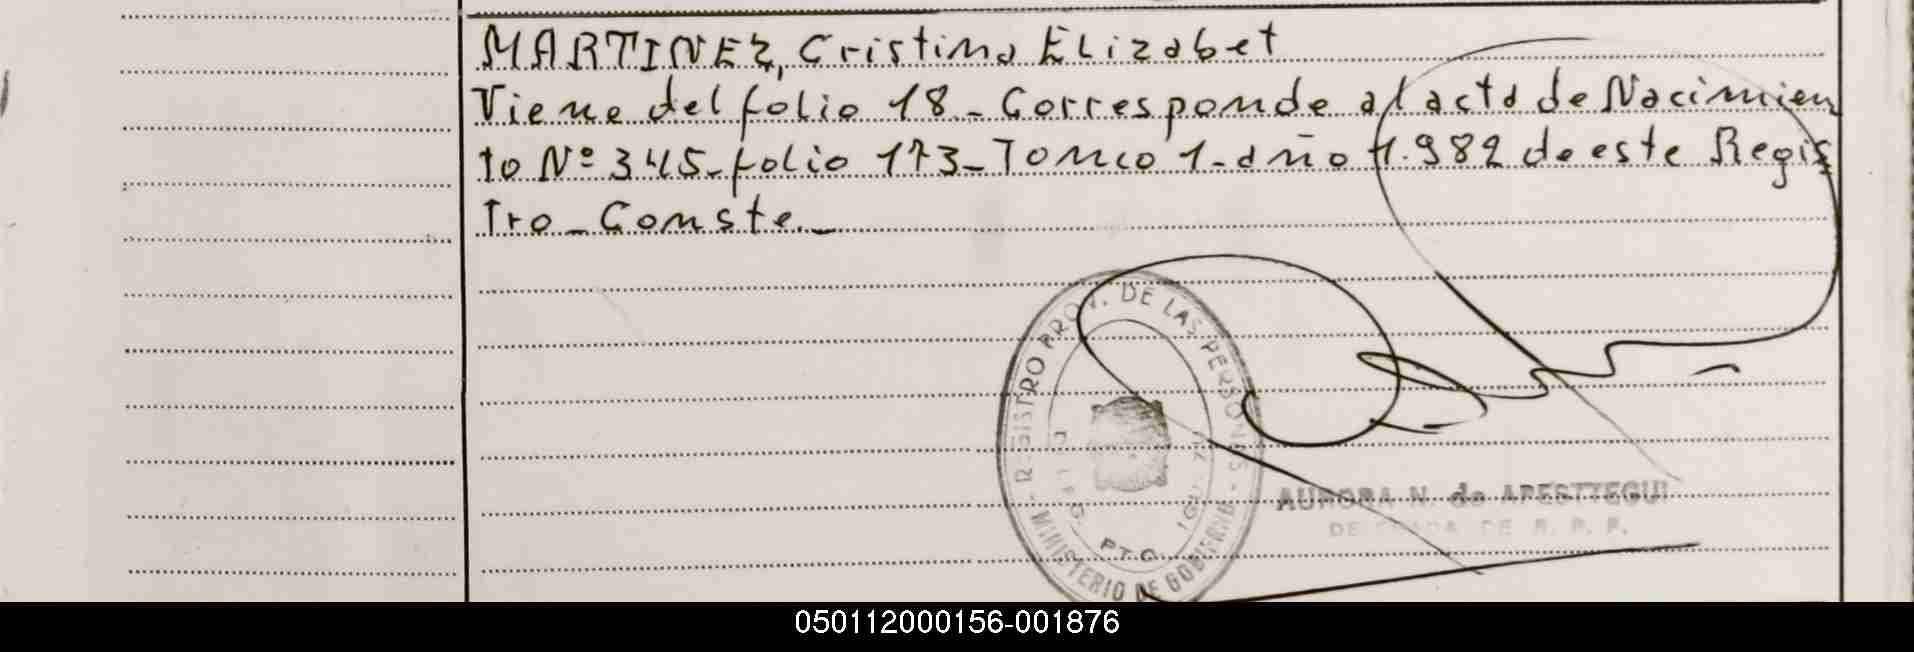 MARTINEZ, Cristina Elizabet
Viene del folio 18_ Corresponde al acta de Nacimien
to Nº 345_folio 173_Tomo 1_año 1.982 de este Regis
tro_Conste._
REGISTRO PROV. DE LAS PERSONAS
MINISTERIO DE GOBIERNO
PTO. IGUAZU
AURORA N. de APESTTEGUI
DELEGADA DE R. P. P.
050112000156-001876